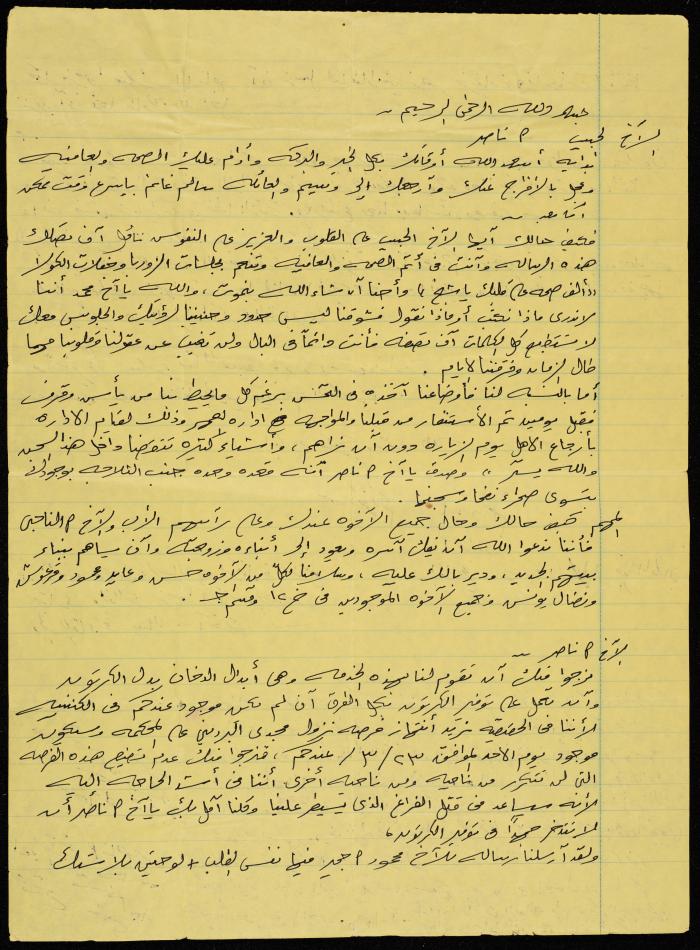 بسم الله الرحمن الرحيم
الأخ الحبيب م ناصر
بداية أسعد الله أوقاتك بكل الخير والبركه وأدام عليك الصحه والعافيه
وعجل بالإفراج عنك وأرجعك إلى وسيم والعائله سالم غانم بأسرع وقت ممكن
أما بعد
فكيف حالك أيها الأخ الحبيب على القلوب والعزيز على النفوس نأمل أن تصلك
هذه الرساله وأنت في أتم الصحه والعافيه وتنعم بجلسات الزوربا وحفلات الكولا
"ألف صحه على قلبك يا شيخ" وأحنا أن شاء الله بنموت، والله يا أخ محمد أننا
لا ندري ماذا نكتب أو ماذا نقول فشوقنا ليس له حدود وحنيننا لرؤيتك والجلوس معك
لا تستطيع كل الكلمات أن تصفه فأنت دائماً في البال ولن تغيب عن عقولنا وقلوبنا مهما
طال الزمان وفرقتنا الأيام.
أما بالنسبه لنا فأوضاعنا آخذه في التحسن برغم كل ما يحيط بنا من يأس وقرف
فقبل يومين تم الأستنفار من قبلنا والمواجهه مع اداره وذلك لقيام الاداره
بأرجاع الاهل يوم الزياره دون أن نراهم، وأشياء كثيره تنقصنا داخل هذا السجن
والله يستر، وصدق يا أخ م ناصر أنه قعده وحده جنب الثلاجه بوجودك
بتسوى صحراء نفحا وسجنها.
المهم كيف حالك وحال جميع الأخوه عندك وعلى رأسهم الأب والأخ م الناجي
فأننا ندعوا الله أن يفك أسره ويعود إلى أبناءه وزوجته وأن يساهم ببناء
بيتهم الجديد، ودير بالك عليه، وسلامنا لكل من الأخوه حسن وعايد ومحمود وقرعوش
ونضال يونس وجميع الأخوه الموجودين في خ ١٢ وقسم
الأخ م ناصر
نرجوا منك أن تقوم لنا بهذه الخدمه وهي أبدال الدخان بدل الكرتون
وأن تعمل على توفير الكرتون بكل الطرق أن لم يكن موجود عندكم في الكنتين
لأننا في الحقيقه نريد أنتهاز فرصه نزول مجدي على المحكمه وسيكون
موجود يوم الاحد الموافق ٢٣/٣/ عندكم، فنرجوا منك عدم تضييع هذه الفرصه
التي لن تتكرر من ناحيه ومن ناحيه أخرى أننا في أشد الحاجه اليه
لأنه يساعد في قتل الفراغ الذي يسيطر علينا وكلنا أمل بك يا أخ م ناصر أن
لا تدخر جهداً في توفير الكرتون،
ولقد أرسلنا رساله للأخ محمود م فيها نفس الطلب + لوحتين بلاستيك